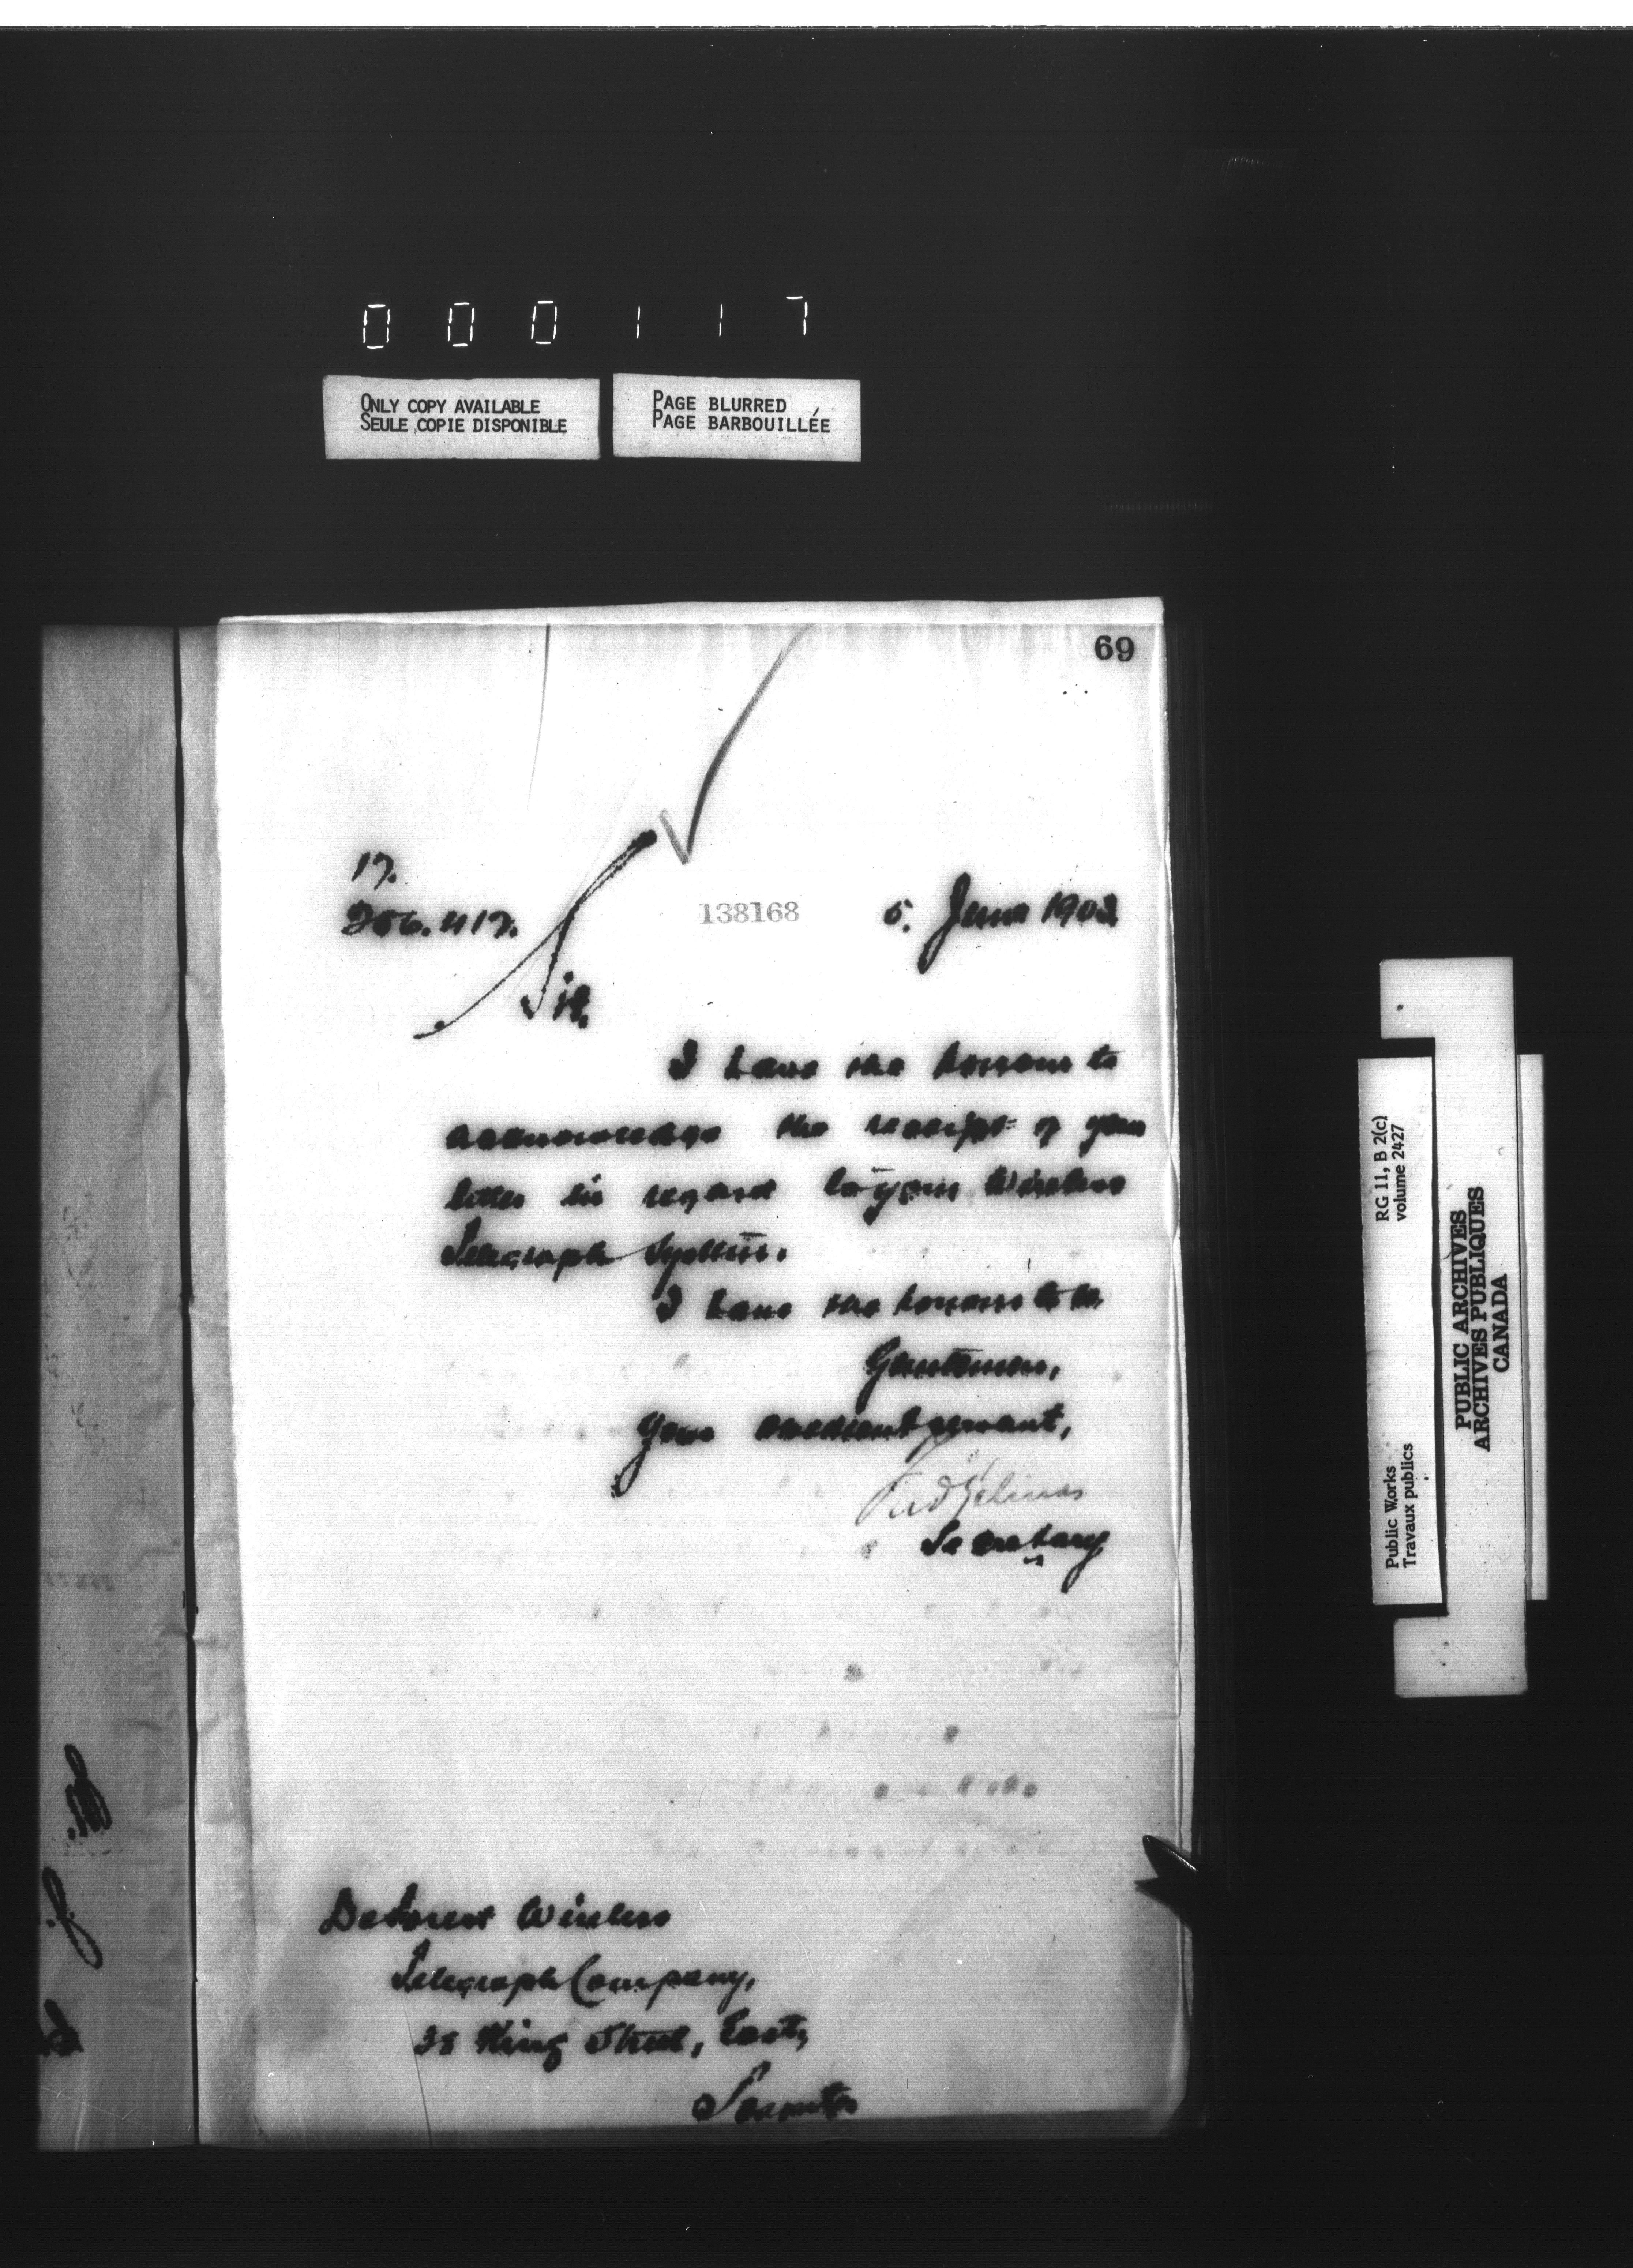 000117
ONLY COPY AVAILABLE
SEULE COPIE DISPONIBLE
PAGE BLURRED
PAGE BARBOUILLÉE
69
17.
256.417.
138168
5. June 1903
Sir,
I have the honour to
acknowledge the receipt of your
letter in regard to your Wireless
Telegraph System.
I have the honour to be
Gentlemen,
Your obedient servant,
Fred Gelinas
Secretary
DeForest Wireless
Telegraph Company,
38 King Street, East,
Toronto
RG 11, B 2(c)
volume 2427
Public Works
Travaux publics
PUBLIC ARCHIVES
ARCHIVES PUBLIQUES
CANADA